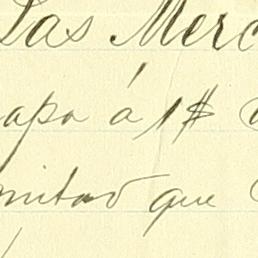 Las Merc
apa á 1$
mitas que